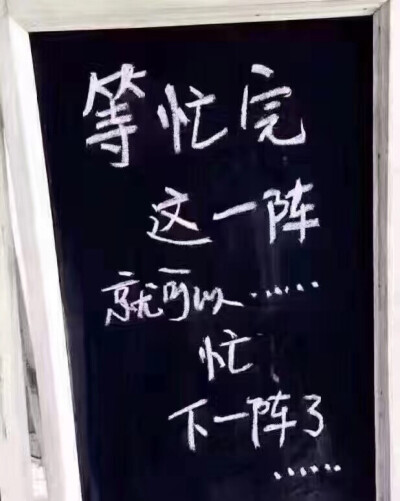 等忙完
这一阵
就可以……
忙
下一阵了
……